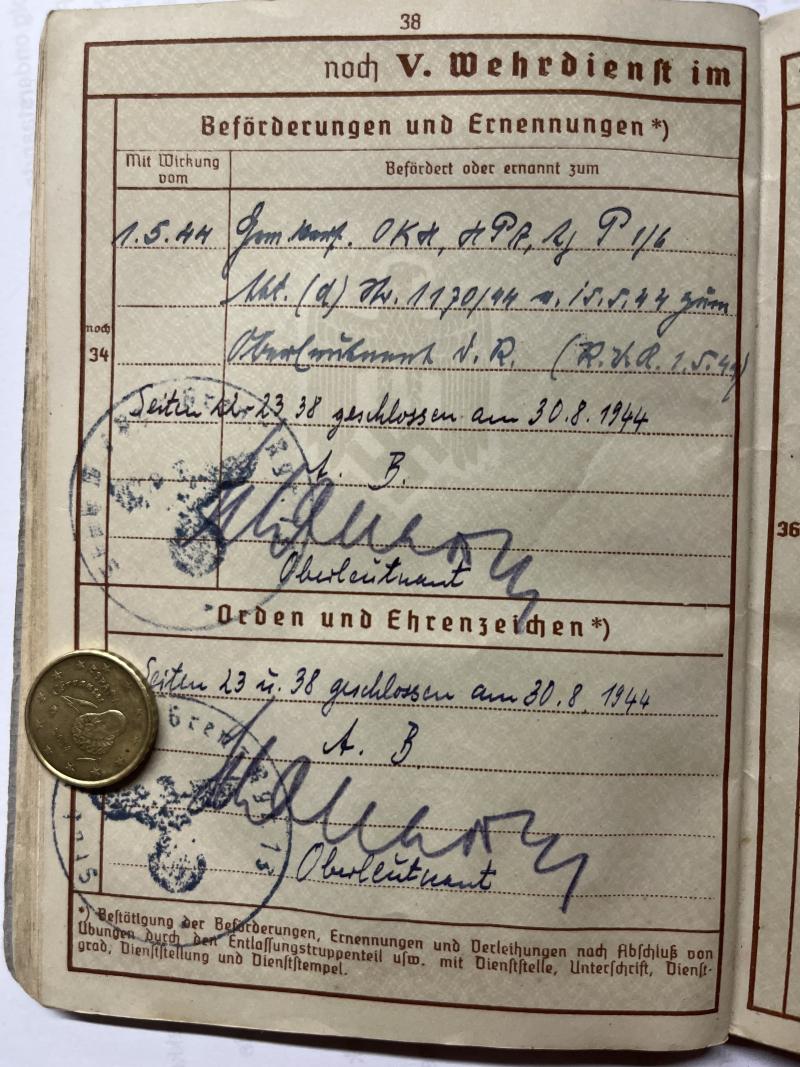 38
noch V. Wehrdienst im
Beförderungen und Ernennungen *)
Mit Wirkung
vom
Befördert oder ernannt zum
1.5.44 Gem. Verf. OKH, HPA, Ag P 1/6
Abt. (d) Nr. 1170/44 v. 15.5.44 zum
noch
34
Oberleutnant d. R. (R.D.A. 1.5.44)
Seiten 23 38 geschlossen am 30.8.1944
A. B.
Oberleutnant
Orden und Ehrenzeichen *)
Seiten 23 u. 38 geschlossen am 30.8.1944
A. B
Oberleutnant
*) Bestätigung der Beförderungen, Ernennungen und Verleihungen nach Abschluß von
Übungen durch den Entlassungstruppenteil usw. mit Dienststelle, Unterschrift, Dienst-
grad, Dienststellung und Dienststempel.
36